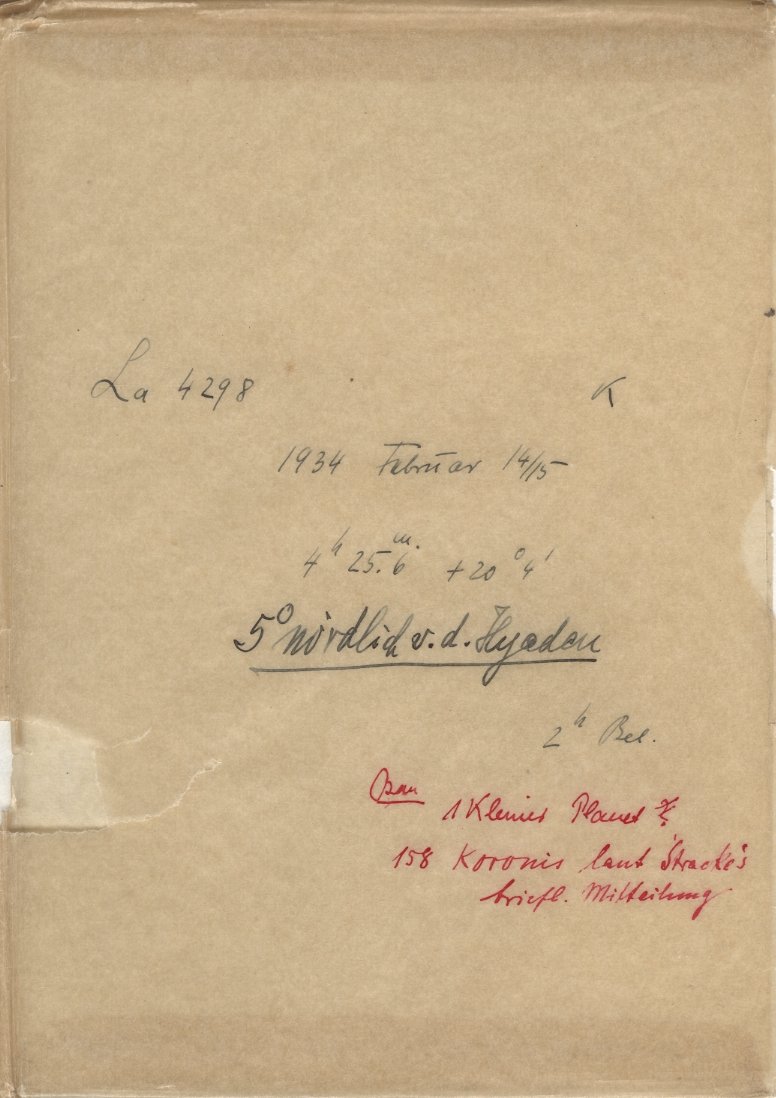 La 4298 K
1934 Februar 14/15
4ʰ 25.ᵐ6 +20° 4'
5° nördlich v. d. Hyaden
2ʰ Bel.
1 Kleiner Planet
158 Koronis laut Stracke's
briefl. Mitteilung